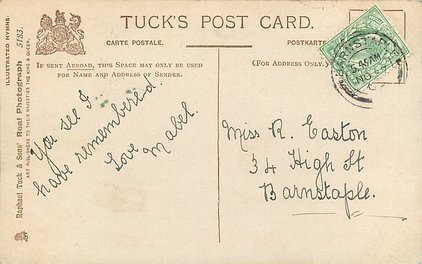 TUCK'S POST CARD.
CARTE POSTALE.
POSTKARTE
IF SENT ABROAD, THIS SPACE MAY ONLY BE USED
FOR NAME AND ADDRESS OF SENDER.
(FOR ADDRESS ONLY.)
ILLUSTRATED HYMNS.
Raphael Tuck & Sons' Real Photograph 5183.
ART PUBLISHERS TO THEIR MAJESTIES THE KING & QUEEN.
BARNSTAPLE
You see I
have remembered.
Love Mabel.
Miss R. Easton
34 High St
Barnstaple.